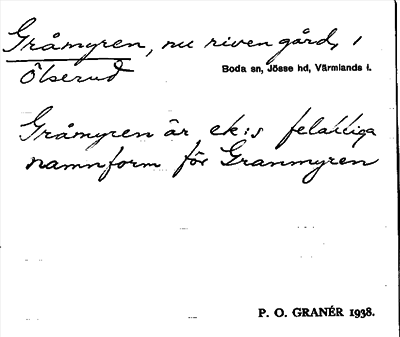 Gråmyren, nu riven gård, i
Ölserud
Boda sn, Jösse hd, Värmlands l.
Gråmyren är ek:s felaktiga
namnform för Granmyren
P. O. GRANÉR 1938.